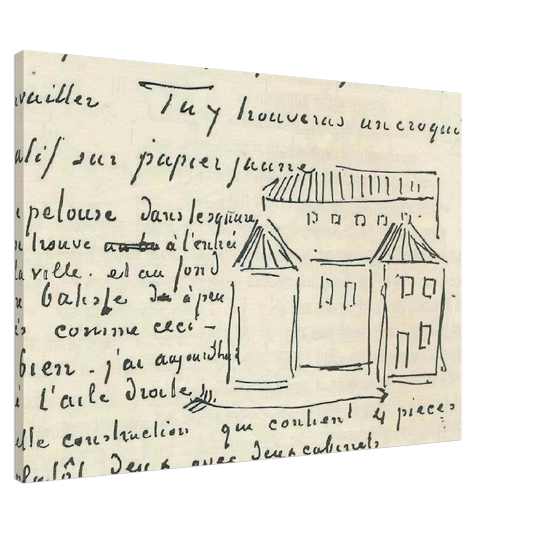 availler Tu y trouveras un croqui
atif sur papier jaune
pelouse dans le square
trouve à l'entrée
la ville. et au fond
batisse à peu
comme ceci -
bien - j'ai aujourd'hui
l'aile droite
elle construction qui contient 4 pieces
plutôt deux avec deux cabinets